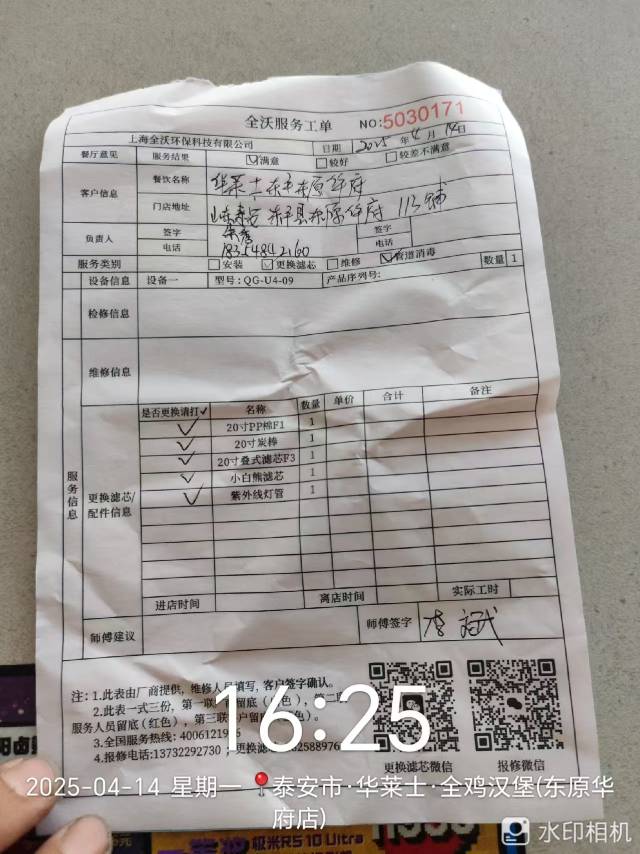 全沃服务工单 NO:5030171
上海全沃环保科技有限公司 日期 2025年4月14日
餐厅意见 服务结果 ☑满意 □较好 □较差不满意
客户信息 餐饮名称 华莱士东平东原华府
门店地址 山东泰安东平县东原华府 113铺
负责人 签字 签字
电话 18354842160 电话
服务类别 □安装 ☑更换滤芯 □维修 ☑管道消毒 数量 1
设备信息 设备一 型号:QG-U4-09 产品序列号:
检修信息
维修信息
服务信息
更换滤芯/配件信息
是否更换请打✓ 名称 数量 单价 合计 备注
✓ 20寸PP棉F1 1
✓ 20寸炭棒 1
✓ 20寸叠式滤芯F3 1
✓ 小白熊滤芯 1
✓ 紫外线灯管 1
进店时间 离店时间 实际工时
师傅建议 师傅签字
注:1.此表由厂商提供,维修人员填写,客户签字确认。
2.此表一式三份,第一联 留底( 色),第二
服务人员留底(红色),第三联 户留 色)。
3.全国服务热线:4006121976
4.报修电话:13732292730;更换滤
更换滤芯微信 报修微信
16:25
2025-04-14 星期一 泰安市·华莱士·全鸡汉堡(东原华
府店)
极米RS10 Ultra
水印相机